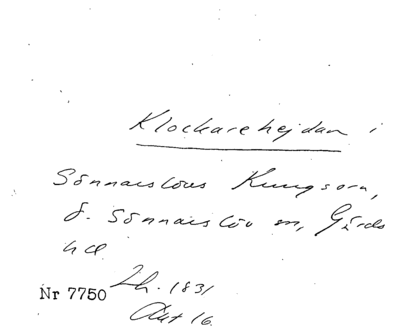 Klockarehejdan i
Sönnarslövs Kungsorn,
S. Sönnarslöv sn, Gärds
hd
Lh. 1831
Nr 7750
Akt 16.